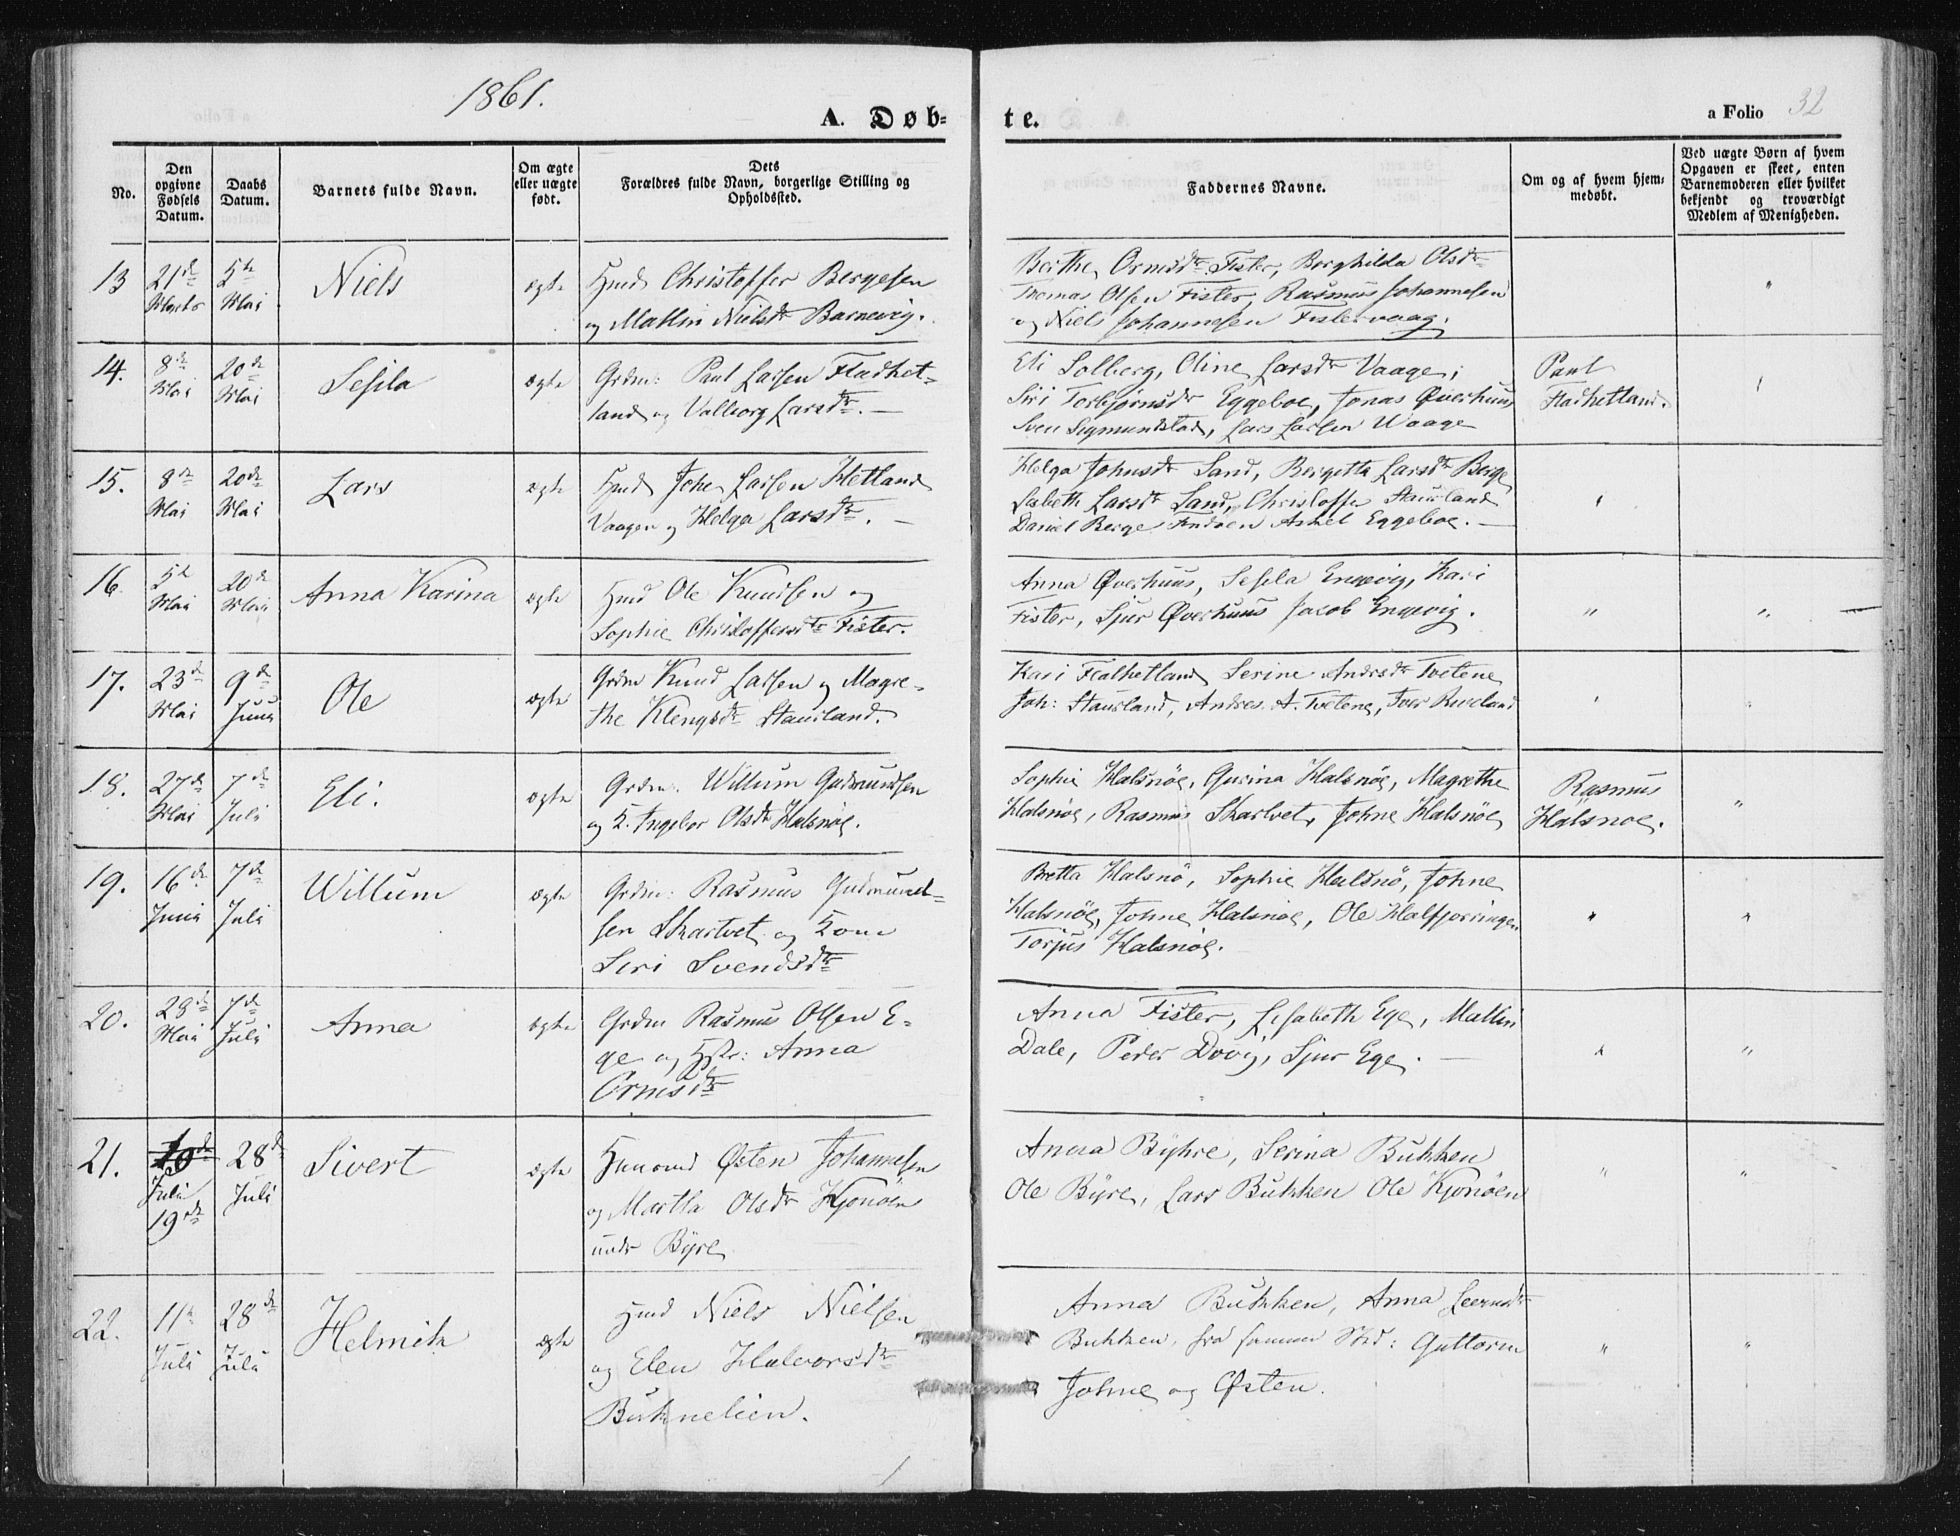 1861.
A. Døb-
te.
a Folio 32
No.
Den
opgivne
Fødsels
Datum.
Daabs
Datum.
Barnets fulde Navn.
Om ægte
eller uægte
født.
Dets
Forældres fulde Navn, borgerlige Stilling og
Opholdssted.
Faddernes Navne.
Om og af hvem hjem-
medøbt.
Ved uægte Børn af hvem
Opgaven er skeet, enten
Barnemoderen eller hvilket
bekjendt og troværdigt
Medlem af Menigheden.
13 21de 5te Niels ægte Hmd Christoffer Bergesen
Marts Mai og Mallin Nielsdt Barnevig.
Berthe Ormsdt Fister, Borghilda Olsdt
Thomas Olsen Fister, Rasmus Johannesen
og Niels Johannesen Fistervaag.
14. 8de 20de Sesila ægte Grdm: Paul Larsen Fladhet-
Mai Mai land og Valborg Larsdtr. —
Eli Solberg, Oline Larsdt Vaage,
Siri Torbjørnsdt Eggeboe, Jonas Øverhuus
Sven Sigmundstad, Lars Larsen Waage
Paul
Fladhetland.
15. 8de 20de Lars ægte Hmd Johe Larsen Hetland
Mai Mai Vaagen og Helga Larsdtr. —
Helga Johnsdt Sand, Bergitta Larsdt Berge
Lisbeth Larsdt Sand, Christoffe Staurland
Daniel Berge Askel Eggeboe. —
16. 5te 20de Anna Karina ægte Hmd Ole Knudsen og
Mai Mai Sophie Christoffersdtr Fister.
Anna Øverhuus, Sesila Engevig, Kari
Fister, Sjur Øverhuus Jacob Engevig.
17. 23de 9de Ole ægte Grdm Knud Larsen og Magre-
Mai Juni the Klengsdt Staurland.
Kari Fladhetland Serine Andrsdt Tvetene
Joh: Staurland, Andres A. Tvetene, Iver Riveland
18. 27de 7de Eli. ægte Grdm: Willum Gudmundsen
Mai Juli og K. Ingebor Olsdt Halsnøe.
Sophie Halsnøe, Gurina Halsnøe, Magrethe
Halsnøe, Rasmus Skartvet, Johne Halsnøe
Rasmus
Halsnoe.
19. 16de 7de Willum ægte Grdm: Rasmus Gudmund-
Juni Juli sen Skartvet og Kone
Siri Svendsdtr
Britta Halsnø, Sophie Halsnø, Johne
Halsnøe, Johne Halsnøe, Ole Halfjorringen
Torjus Halsnøe.
20. 29de 7de Anna ægte Grdm Rasmus Olsen E-
Mai Juli ge og Hstr: Anna
Ormsdtr
Anna Fister, Lisabeth Ege, Mallin
Dale, Peder Dovig, Sjur Ege. —
21. 10de 28de Sivert ægte Husmand Østen Johannesen
Juli Juli og Martha Olsdt Kjonøen
19de under Byre
Anna Byhre, Serina Bukken
Ole Byre, Lars Bukken Ole Kjonøen
22. 11te 28de Helmik ægte Hmd Niels Nielsen
Juli Juli og Elen Halvorsdt
Buknelien.
Anna Bukken, Anna
Bukken, fra samme Sted: Guttorm
Johne og Østen.